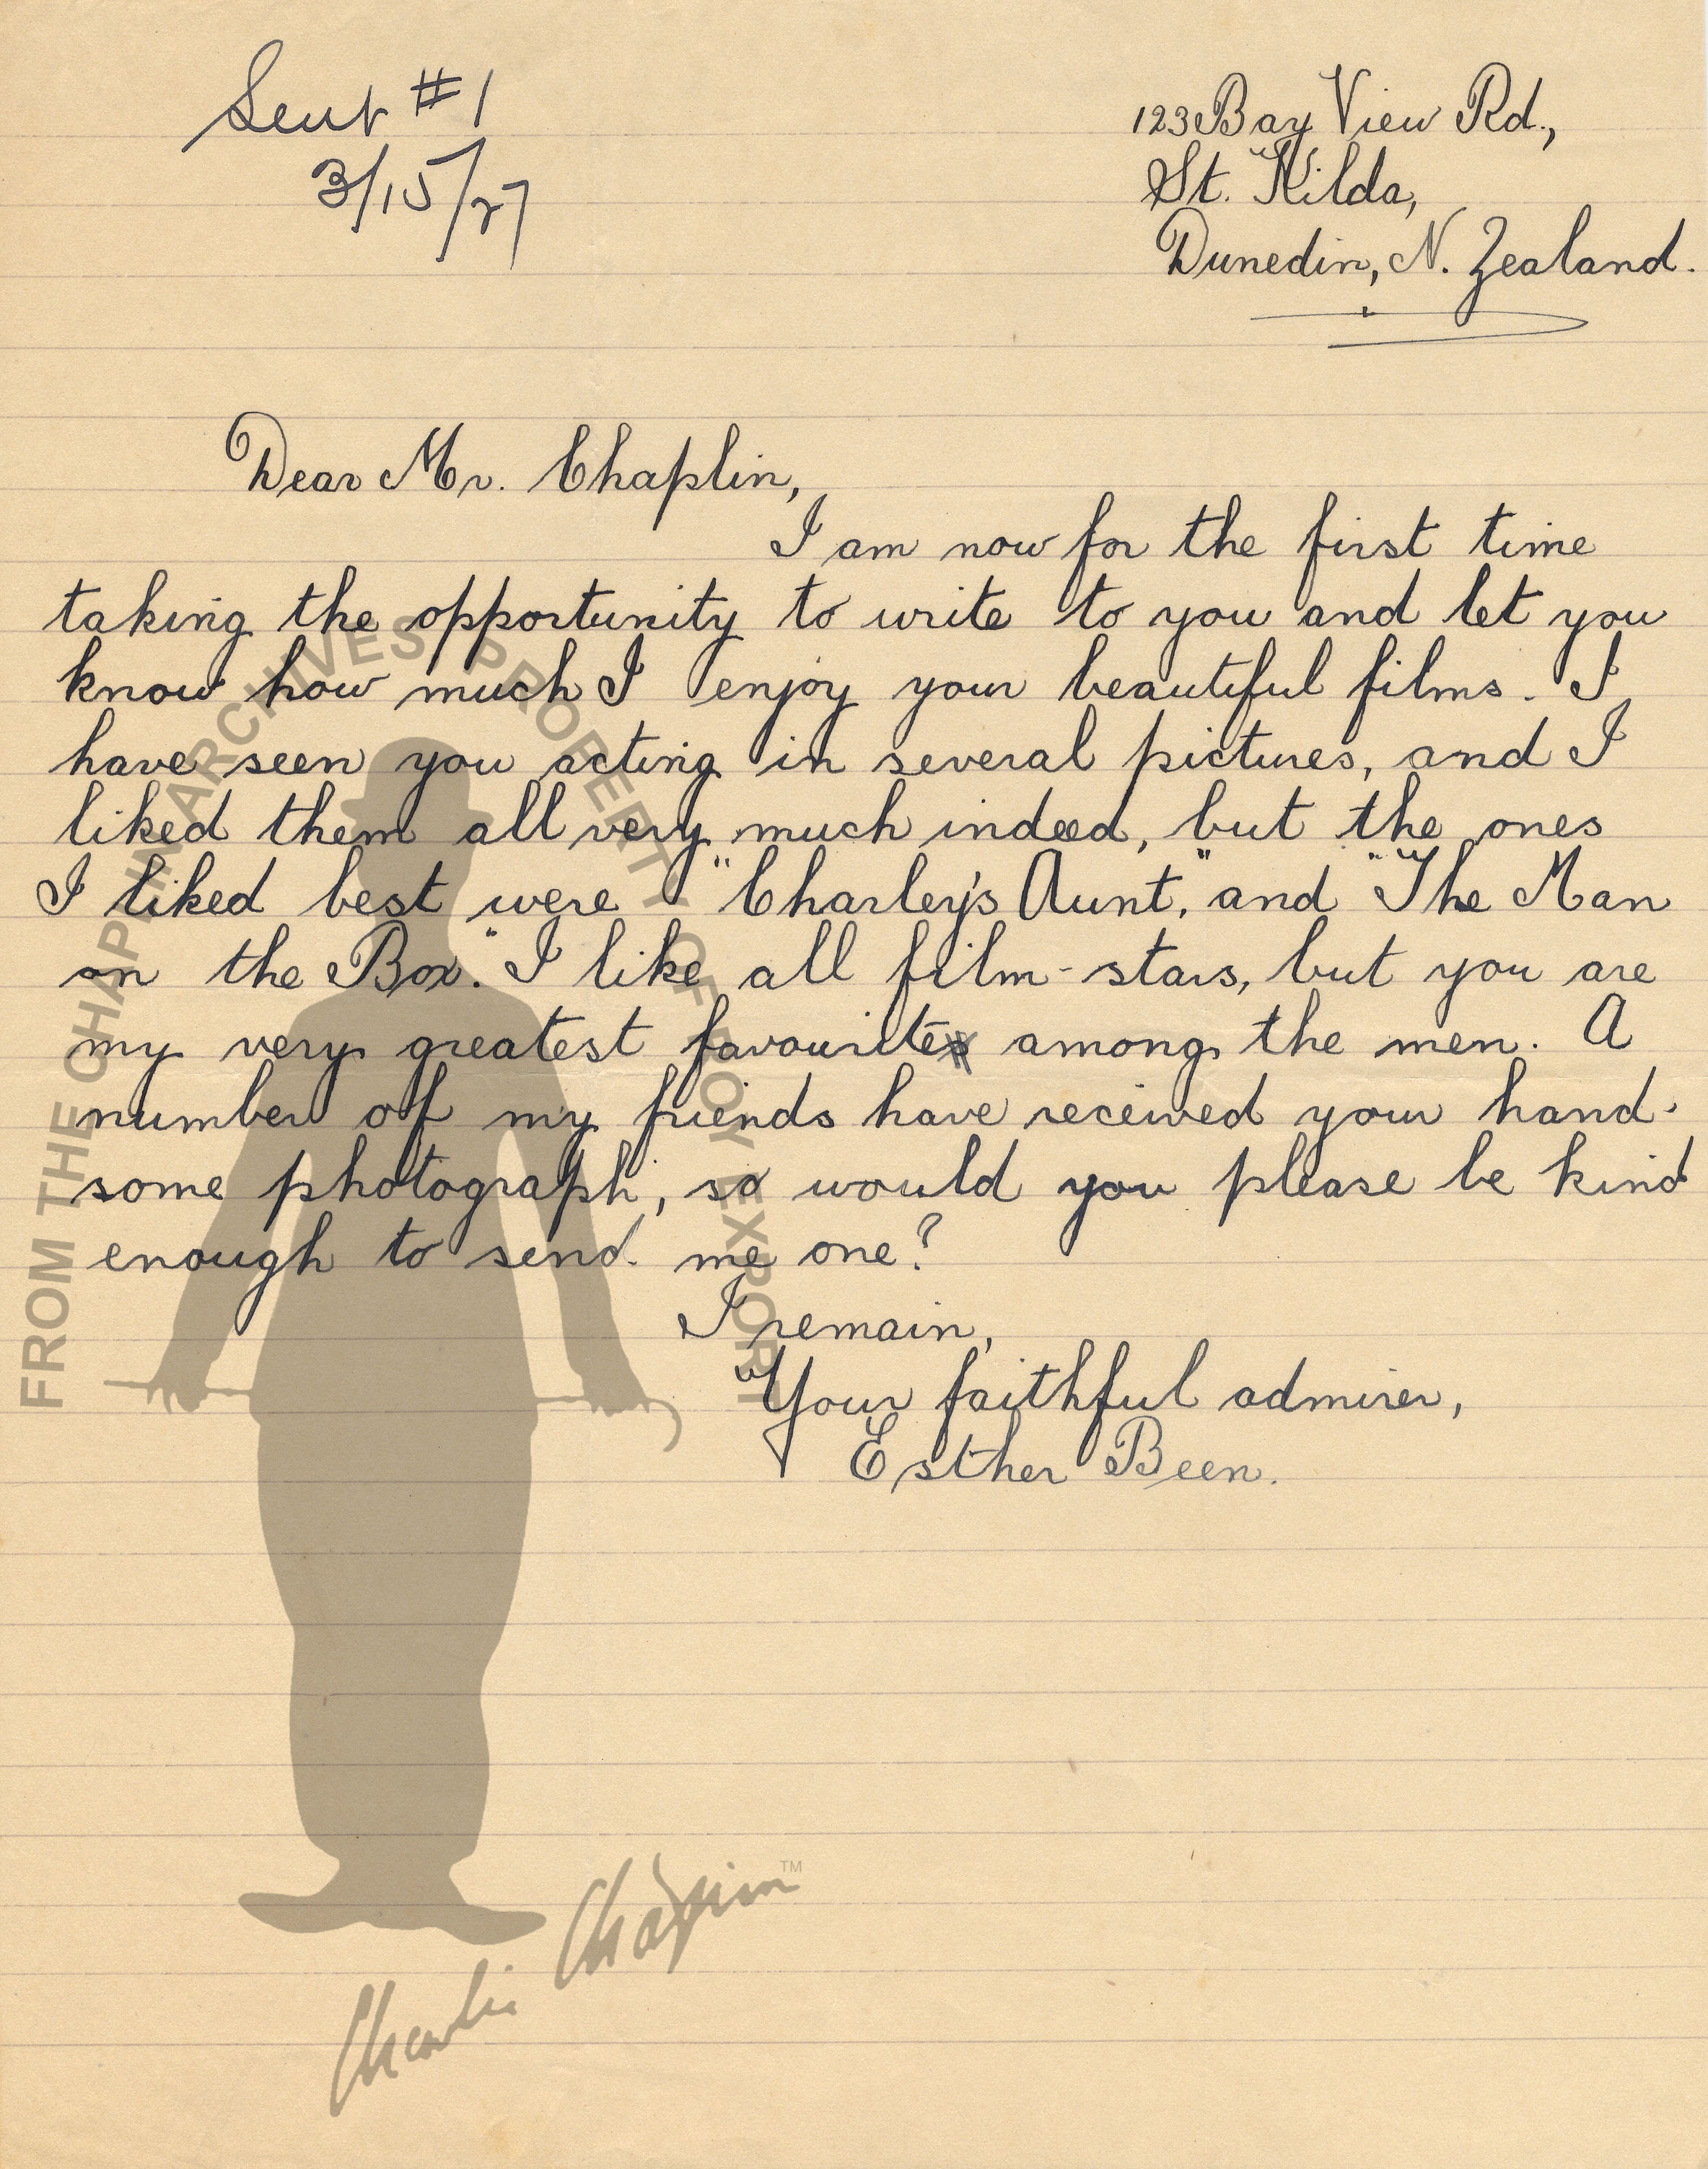 Sent #1
3/15/27
123 Bay View Rd.,
St. Kilda,
Dunedin, N. Zealand.
Dear Mr. Chaplin,
I am now for the first time
taking the opportunity to write to you and let you
know how much I enjoy your beautiful films. I
have seen you acting in several pictures, and I
liked them all very much indeed, but the ones
I liked best were "Charley's Aunt," and "The Man
on the Box." I like all film-stars, but you are
my very greatest favourite among the men. A
number of my friends have received your hand-
some photograph, so would you please be kind
enough to send me one?
I remain,
Your faithful admirer,
Esther Been.
FROM THE CHAPLIN ARCHIVES PROPERTY OF ROY EXPORT
Charlie Chaplin™